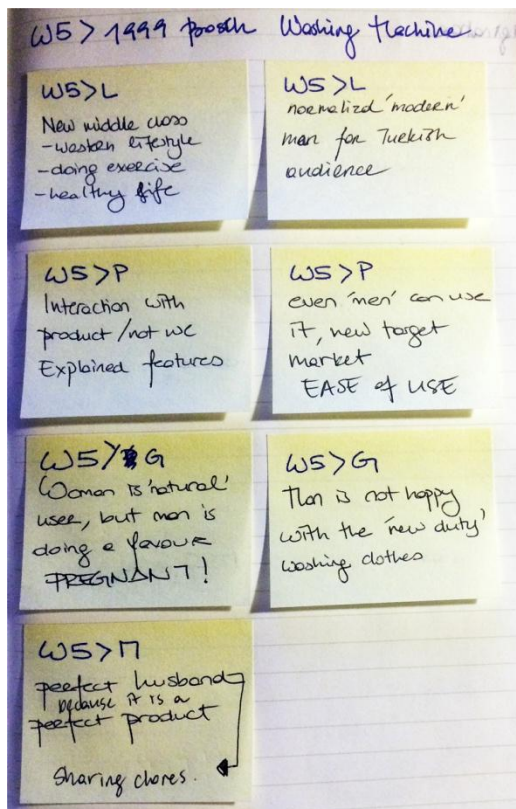 W5 > 1999 Bosch Washing Machine
W5>L
New middle class
-western lifestyle
-doing exercise
-healthy life
W5>L
normalized 'modern'
man for Turkish
audience
W5>P
Interaction with
product/not we
Explained features
W5>P
even 'men' can use
it, new target
market
EASE of USE
W5>G
Woman is 'natural'
user, but man is
doing a favour
PREGNANT!
W5>G
Man is not happy
with the 'new duty'
washing clothes
W5>M
perfect husband
because it is a
perfect product
Sharing chores.